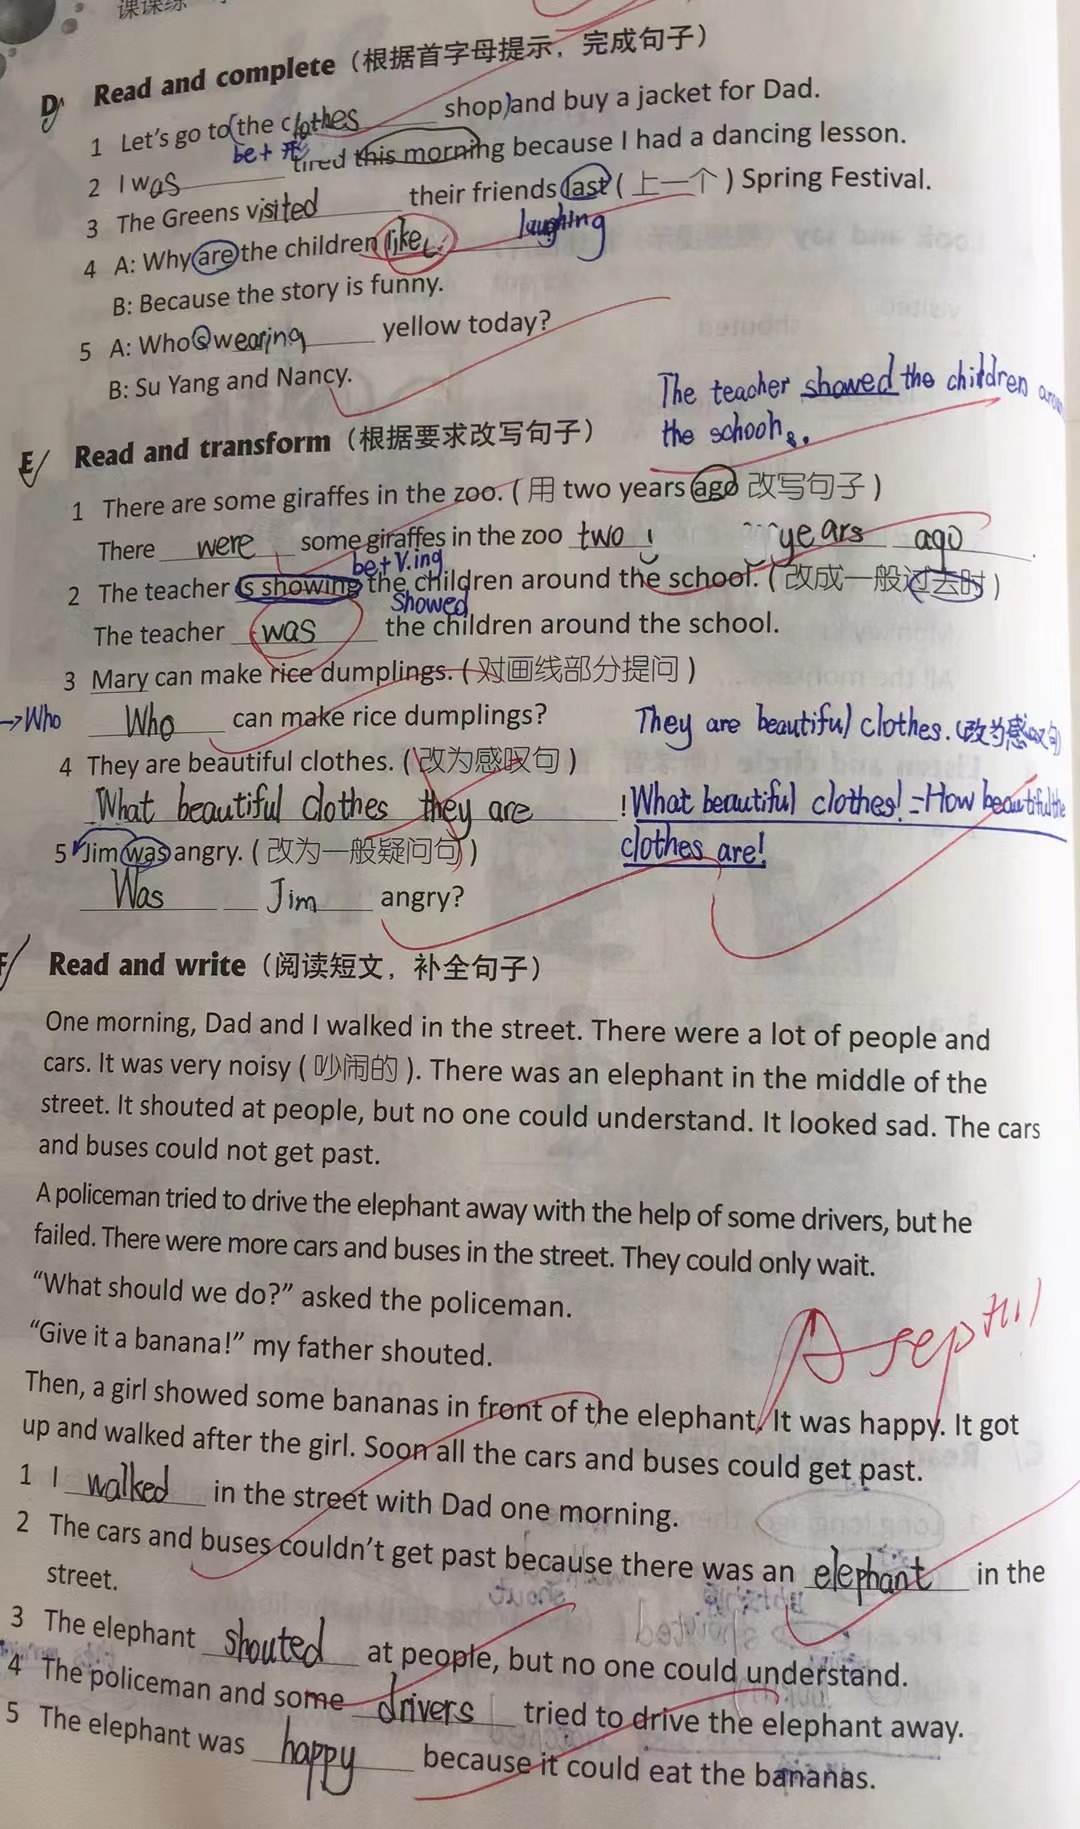 课课练
D Read and complete（根据首字母提示，完成句子）
1 Let's go to (the clothes shop) and buy a jacket for Dad.
be + 形
2 I was tired this morning because I had a dancing lesson.
3 The Greens visited their friends last ( 上一个 ) Spring Festival.
4 A: Why are the children like laughing
B: Because the story is funny.
5 A: Who wearing yellow today?
B: Su Yang and Nancy.
The teacher showed the children
the school
E Read and transform（根据要求改写句子）
1 There are some giraffes in the zoo. ( 用 two years ago 改写句子 )
There were some giraffes in the zoo two years ago .
be+V.ing
2 The teacher is showing the children around the school. ( 改成一般过去时 )
showed
The teacher was the children around the school.
3 Mary can make rice dumplings. ( 对画线部分提问 )
→Who Who can make rice dumplings?
They are beautiful clothes. (改为感叹句)
4 They are beautiful clothes. ( 改为感叹句 )
What beautiful clothes they are ! What beautiful clothes! = How beautiful the
clothes are!
5 Jim was angry. ( 改为一般疑问句 )
Was Jim angry?
F Read and write（阅读短文，补全句子）
One morning, Dad and I walked in the street. There were a lot of people and
cars. It was very noisy ( 吵闹的 ). There was an elephant in the middle of the
street. It shouted at people, but no one could understand. It looked sad. The cars
and buses could not get past.
A policeman tried to drive the elephant away with the help of some drivers, but he
failed. There were more cars and buses in the street. They could only wait.
“What should we do?” asked the policeman.
“Give it a banana!” my father shouted.
Then, a girl showed some bananas in front of the elephant. It was happy. It got
up and walked after the girl. Soon all the cars and buses could get past.
1 I walked in the street with Dad one morning.
2 The cars and buses couldn't get past because there was an elephant in the
street.
3 The elephant shouted at people, but no one could understand.
4 The policeman and some drivers tried to drive the elephant away.
5 The elephant was happy because it could eat the bananas.